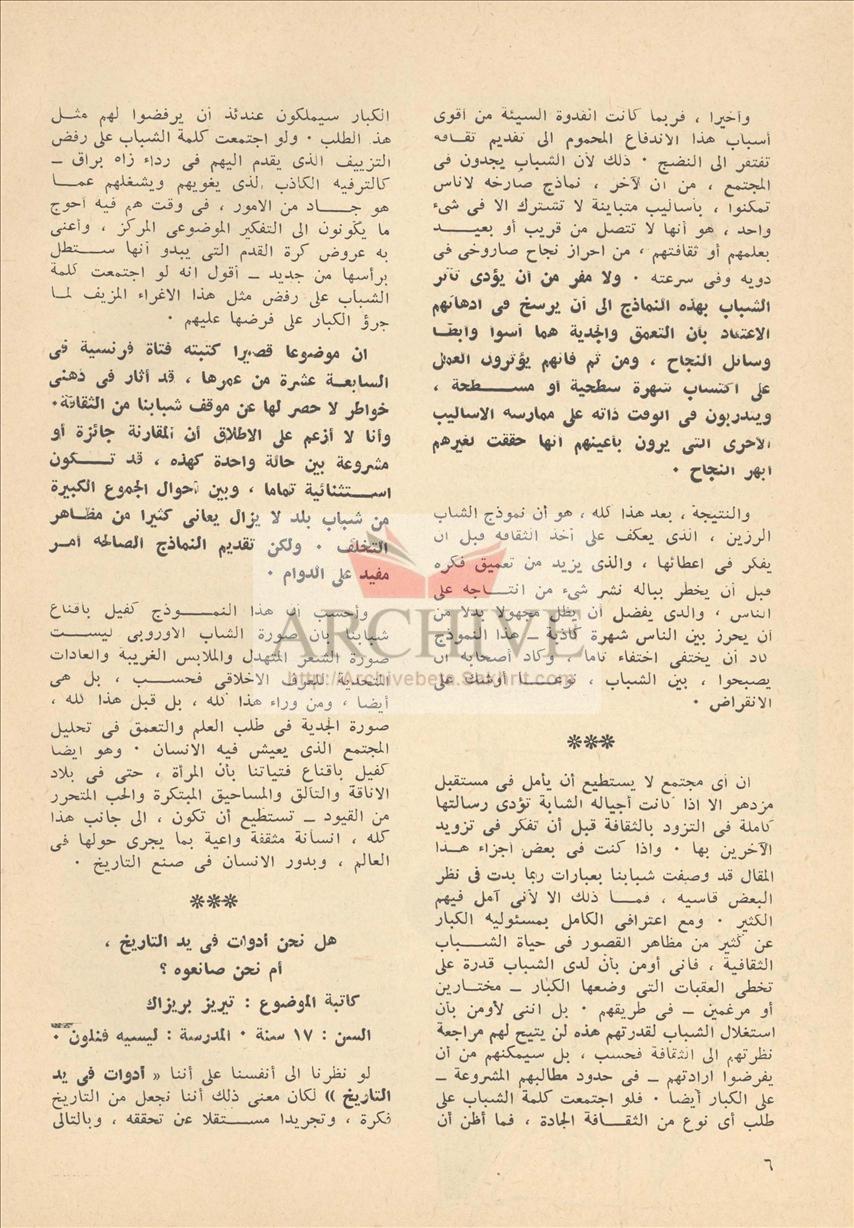 وأخيرا ، فربما كانت القدوة السيئة من أقوى
أسباب هذا الاندفاع المحموم الى تقديم ثقافة
تفتقر الى النضج ٠ ذلك لأن الشباب يجدون فى
المجتمع ، من آن لآخر ، نماذج صارخة لاناس
تمكنوا ، بأساليب متباينة لا تشترك الا فى شىء
واحد ، هو أنها لا تتصل من قريب أو بعيد
بعلمهم أو ثقافتهم ، من احراز نجاح صاروخى فى
دويه وفى سرعته ٠ ولا مفر من أن يؤدى تأثر
الشباب بهذه النماذج الى أن يرسخ فى اذهانهم
الاعتقاد بأن التعمق والجدية هما أسوا وأبطأ
وسائل النجاح ، ومن ثم فانهم يؤثرون العمل
على اكتساب شهرة سطحية أو مسطحة ،
ويتدربون فى الوقت ذاته على ممارسة الاساليب
الأخرى التى يرون بأعينهم أنها حققت لغيرهم
أبهر النجاح ٠
والنتيجة ، بعد هذا كله ، هو أن نموذج الشاب
الرزين ، الذى يعكف على أخذ الثقافة قبل أن
يفكر فى اعطائها ، والذى يزيد من تعميق فكره
قبل أن يخطر بباله نشر شىء من انتاجه على
الناس ، والذى يفضل أن يظل مجهولا بدلا من
أن يحرز بين الناس شهرة كاذبة ــ هذا النموذج
كاد أن يختفى اختفاء تاما ، وكاد أصحابه أن
يصبحوا ، بين الشباب ، نوعا أوشك على
الانقراض ٠
***
ان أى مجتمع لا يستطيع أن يأمل فى مستقبل
مزدهر الا اذا كانت أجياله الشابة تؤدى رسالتها
كاملة فى التزود بالثقافة قبل أن تفكر فى تزويد
الآخرين بها ٠ واذا كنت فى بعض أجزاء هذا
المقال قد وصفت شبابنا بعبارات ربما بدت فى نظر
البعض قاسية ، فما ذلك الا لأنى آمل فيهم
الكثير ٠ ومع اعترافى الكامل بمسئولية الكبار
عن كثير من مظاهر القصور فى حياة الشباب
الثقافية ، فانى أومن بأن لدى الشباب قدرة على
تخطى العقبات التى وضعها الكبار ــ مختارين
أو مرغمين ــ فى طريقهم ٠ بل اننى لأومن بأن
استغلال الشباب لقدرتهم هذه لن يتيح لهم مراجعة
نظرتهم الى الثقافة فحسب ، بل سيمكنهم من أن
يفرضوا ارادتهم ــ فى حدود مطالبهم المشروعة ــ
على الكبار أيضا ٠ فلو اجتمعت كلمة الشباب على
طلب أى نوع من الثقافة الجادة ، فما أظن أن
الكبار سيملكون عندئذ أن يرفضوا لهم مثل
هذ الطلب ٠ ولو اجتمعت كلمة الشباب على رفض
التزييف الذى يقدم اليهم فى رداء زاه براق ــ
كالترفيه الكاذب الذى يغويهم ويشغلهم عما
هو جاد من الامور ، فى وقت هم فيه أحوج
ما يكونون الى التفكير الموضوعى المركز ، وأعنى
به عروض كرة القدم التى يبدو أنها ستطل
برأسها من جديد ــ أقول انه لو اجتمعت كلمة
الشباب على رفض مثل هذا الاغراء المزيف لما
جرؤ الكبار على فرضها عليهم ٠
ان موضوعا قصيرا كتبته فتاة فرنسية فى
السابعة عشرة من عمرها ، قد أثار فى ذهنى
خواطر لا حصر لها عن موقف شبابنا من الثقافة٠
وأنا لا أزعم على الاطلاق أن المقارنة جائزة أو
مشروعة بين حالة واحدة كهذه ، قد تكون
استثنائية تماما ، وبين أحوال الجموع الكبيرة
من شباب بلد لا يزال يعانى كثيرا من مظاهر
التخلف ٠ ولكن تقديم النماذج الصالحة أمر
مفيد على الدوام ٠
وأحسب أن هذا النموذج كفيل باقناع
شبابنا بأن صورة الشاب الأوروبى ليست
صورة الشعر المتهدل والملابس الغريبة والعادات
المتحدية للعرف الاخلاقى فحسب ، بل هى
أيضا ، ومن وراء هذا كله ، بل قبل هذا كله ،
صورة الجدية فى طلب العلم والتعمق فى تحليل
المجتمع الذى يعيش فيه الانسان ٠ وهو أيضا
كفيل باقناع فتياتنا بأن المرأة ، حتى فى بلاد
الاناقة والتألق والمساحيق المبتكرة والحب المتحرر
من القيود ــ تستطيع أن تكون ، الى جانب هذا
كله ، انسانة مثقفة واعية بما يجرى حولها فى
العالم ، وبدور الانسان فى صنع التاريخ ٠
***
هل نحن أدوات فى يد التاريخ ،
أم نحن صانعوه ؟
كاتبة الموضوع : تيريز بريزاك
السن : ١٧ سنة ٠ المدرسة : ليسيه فنلون ٠
لو نظرنا الى أنفسنا على أننا « أدوات فى يد
التاريخ )) لكان معنى ذلك أننا نجعل من التاريخ
فكرة ، وتجريدا مستقلا عن تحققه ، وبالتالى
٦
ARCHIVE
http://Archivebeta.Sakhrit.com